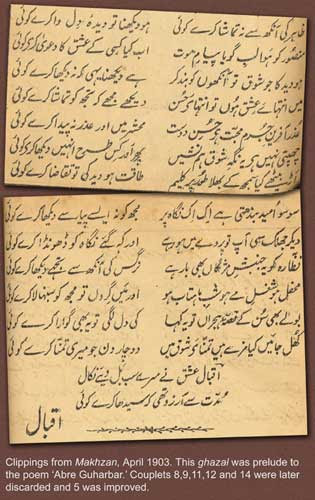 ظاہر کی آنکھ سے نہ تماشا کرے کوئی ہو دیکھنا تو دیدۂ دل وا کرے کوئی
منصور کو ہوا لب گویا پیام موت اب کیا کسی کے عشق کا دعویٰ کرے کوئی
ہو دید کا جو شوق تو آنکھوں کو بند کر ہے دیکھنا یہی کہ نہ دیکھا کرے کوئی
میں انتہائے عشق ہوں تو انتہائے حسن دیکھے مجھے کہ تجھ کو تماشا کرے کوئی
عذر آفرین جرم محبت ہے حسن دوست محشر میں اور عذر نہ پیدا کرے کوئی
چھپتی نہیں ہے یہ نگہ شوق ہم نشیں پھر اور کس طرح انہیں دیکھا کرے کوئی
بیٹھے کیا سمجھ کے بھلا طور پر کلیم طاقت ہو دید کی تو تقاضا کرے کوئی
سو سو امید بندھتی ہے اک اک نگاہ پر مجھ کو نہ ایسے پیار سے دیکھا کرے کوئی
جھلک سی آپ تو پردے میں ہو رہے اور کہہ گئے نگاہ کو ڈھونڈا کرے کوئی
نظارہ کو یہ جنبش مژگاں بھی بار ہے نرگس کی آنکھ سے تجھے دیکھا کرے کوئی
محفل ہو شغل مے ہو شب ماہتاب ہو اور میں گروں تو مجھ کو سنبھالا کرے کوئی
بولے بھی سن کے قصۂ ہجراں تو یہ کہا کی دل لگی تو یہ بھی گوارا کرے کوئی
کھل جائیں کیا مزے ہیں تمنائے شوق میں دو چار دن جو میری تمنا کرے کوئی
اقبال عشق نے مرے سب بل دیئے نکال
مدت سے آرزو تھی کہ سیدھا کرے کوئی
اقبال
Clippings from Makhzan, April 1903. This ghazal was prelude to
the poem ‘Abre Guharbar.’ Couplets 8,9,11,12 and 14 were later
discarded and 5 was improved.